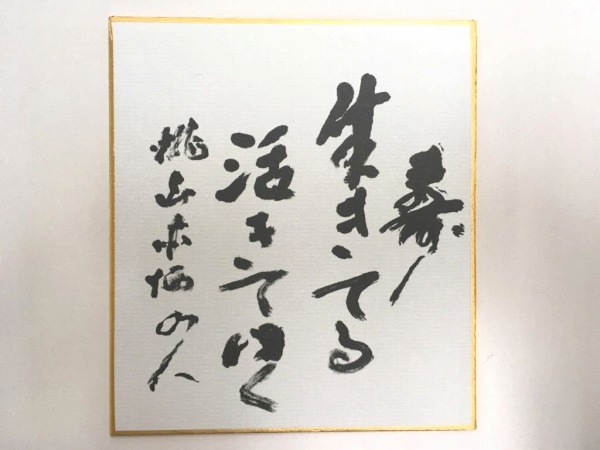 寿
生きてる
活きてゆく
桃山 の人